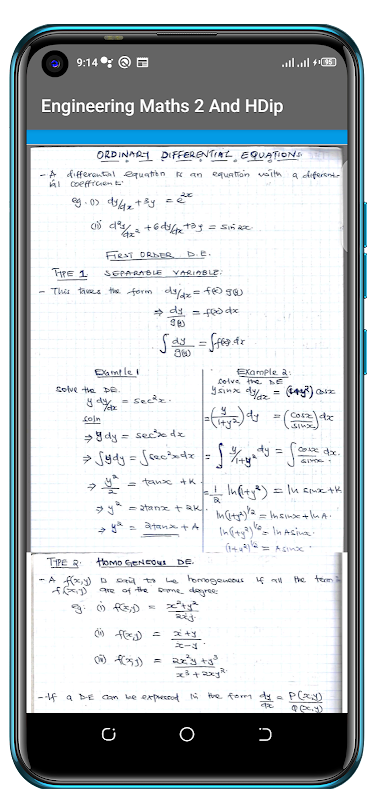 9:14
95
Engineering Maths 2 And HDip
ORDINARY DIFFERENTIAL EQUATIONS
- A differential equation is an equation with a differen-
tial coefficient.
eg. (i) dy/dx + 3y = e^2x
(ii) d²y/dx² + 6dy/dx + 3y = sin 2x
FIRST ORDER D.E.
TYPE 1 SEPARABLE VARIABLE:
- This takes the form dy/dx = f(x) g(y)
⇒ dy/g(y) = f(x) dx
∫ dy/g(y) = ∫ f(x) dx
Example 1
solve the DE.
y dy/dx = sec²x.
soln
⇒ y dy = sec²x dx
⇒ ∫ y dy = ∫ sec²x dx
⇒ y²/2 = tanx + K
⇒ y² = 2tanx + 2K
⇒ y² = 2tanx + A
EXAMPLE 2:
solve the DE
y sinx dy/dx = (1+y²) cosx
= (y/1+y²) dy = (cosx/sinx) dx
= ∫ y/1+y² dy = ∫ cosx/sinx dx.
= 1/2 ln(1+y²) = ln sinx + K
ln(1+y²)^1/2 = ln sinx + ln A.
ln(1+y²)^1/2 = ln A sinx.
(1+y²)^1/2 = A sinx
TYPE 2: HOMOGENEOUS DE.
- A f(x,y) is said to be homogeneous if all the terms
f(x,y) are of the same degree.
eg. (i) f(x,y) = x²+y²/2xy
(ii) f(x,y) = x+y/x-y
(iii) f(x,y) = 2x²y+y³/x³+2xy²
- If a DE can be expressed in the form dy/dx = P(x,y)/Q(x,y)